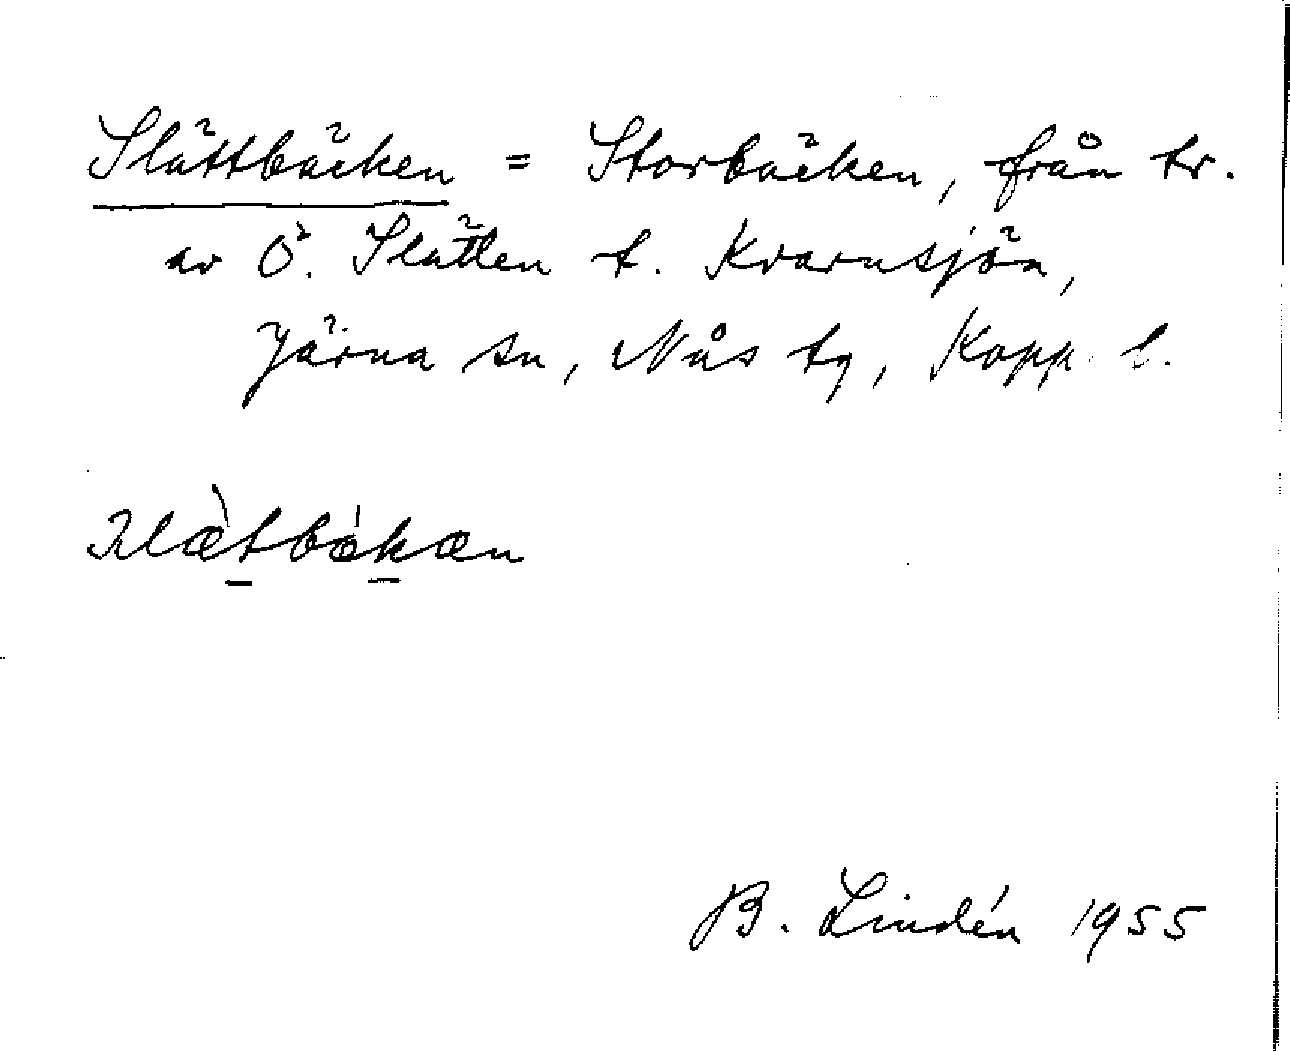 Slättbäcken = Storbäcken, från tr.
av Ö. Slätten t. Kvarnsjön,
Järna sn, Nås tg, Kopp. l.
B. Lindén 1955